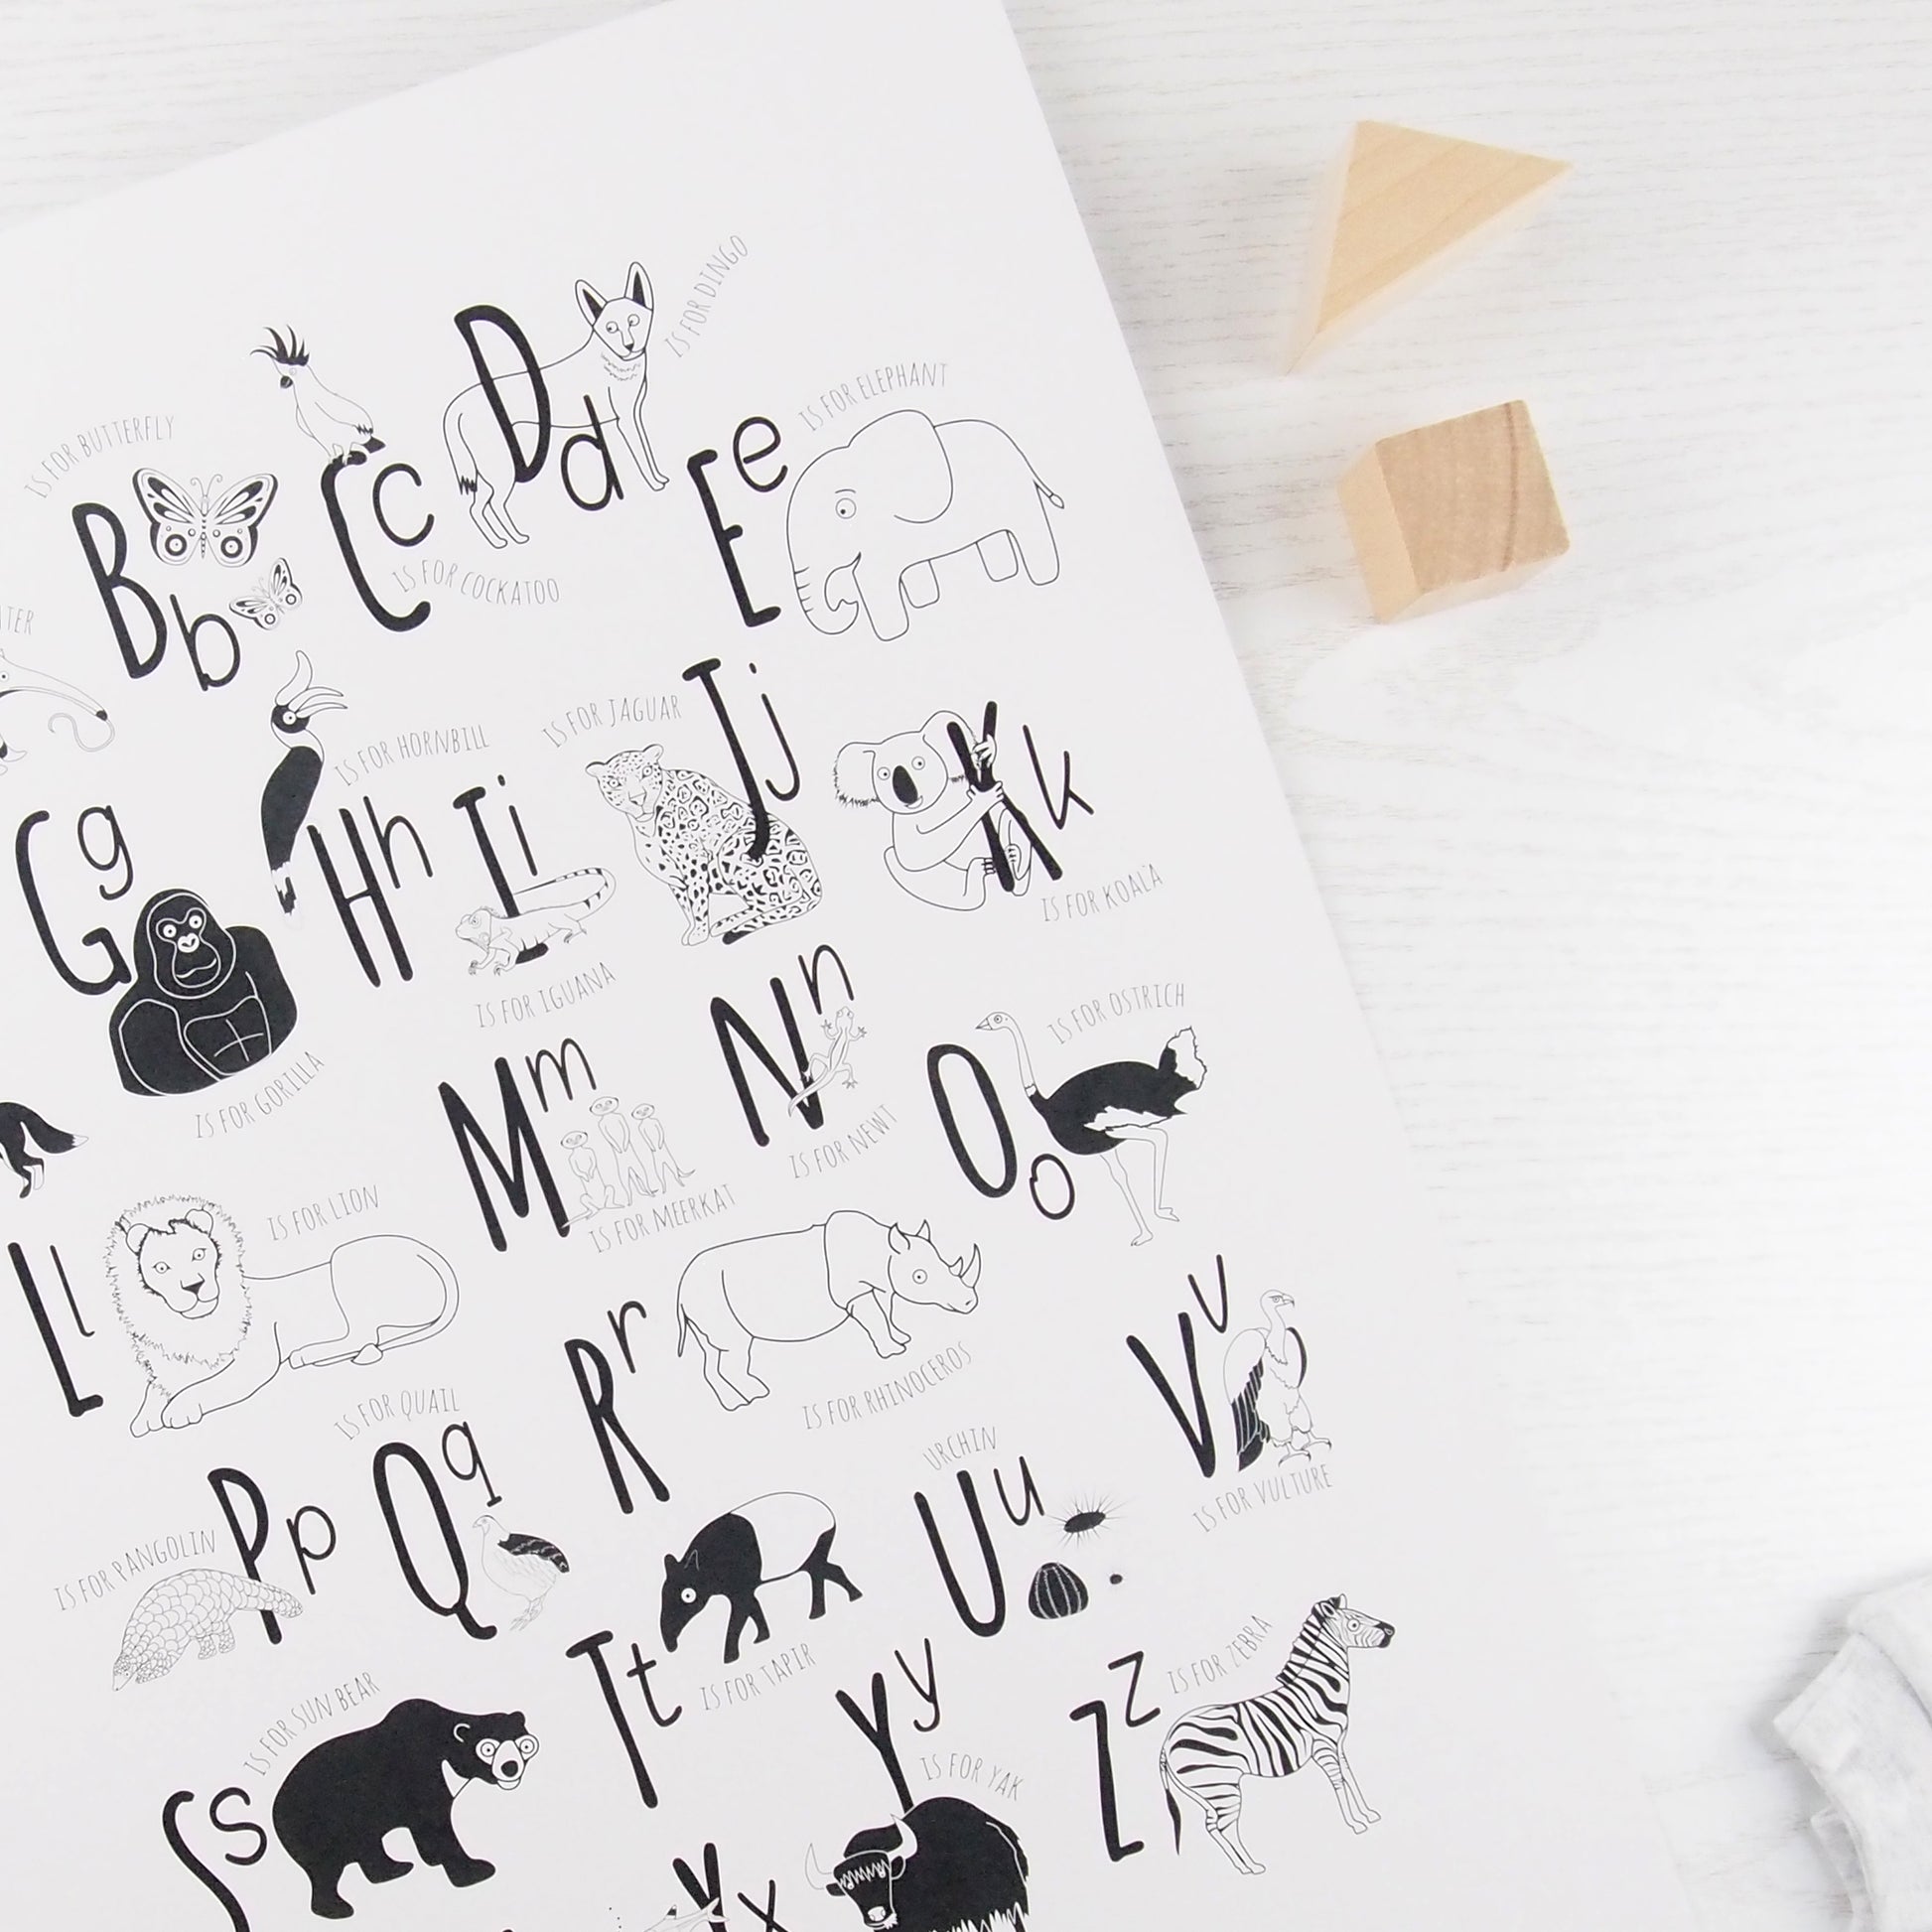 Bb
IS FOR BUTTERFLY
Cc
IS FOR COCKATOO
Dd
IS FOR DINGO
Ee
IS FOR ELEPHANT
Gg
IS FOR GORILLA
Hh
IS FOR HORNBILL
Ii
IS FOR IGUANA
Jj
IS FOR JAGUAR
Kk
IS FOR KOALA
Ll
IS FOR LION
Mm
IS FOR MEERKAT
Nn
IS FOR NEWT
Oo
IS FOR OSTRICH
Pp
IS FOR PANGOLIN
Qq
IS FOR QUAIL
Rr
IS FOR RHINOCEROS
Ss
IS FOR SUN BEAR
Tt
IS FOR TAPIR
Uu
URCHIN
Vv
IS FOR VULTURE
Xx
Yy
IS FOR YAK
Zz
IS FOR ZEBRA